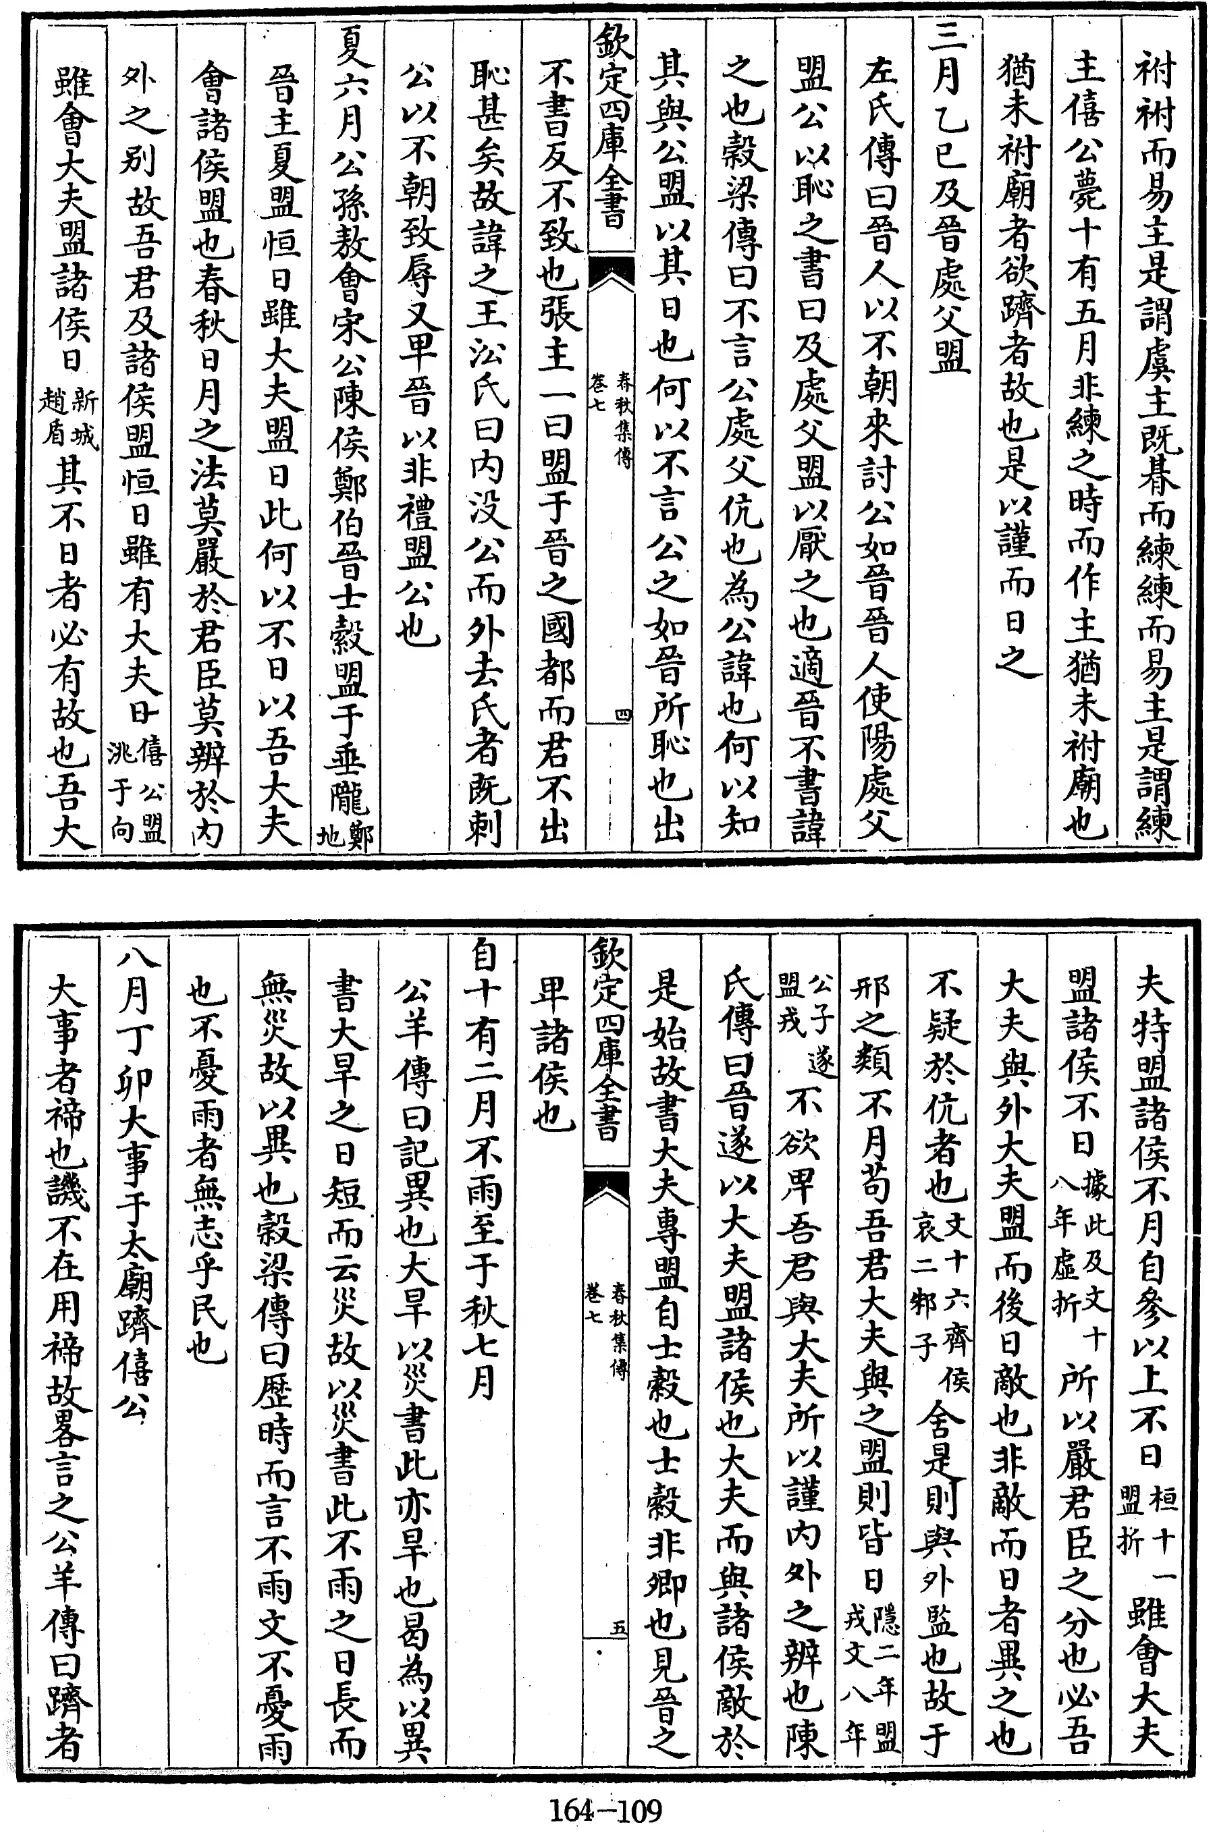 祔祔而易主是謂虞主既朞而練練而易主是謂練
主僖公薨十有五月非練之時而作主猶未祔廟也
猶未祔廟者欲躋者故也是以謹而日之
三月乙巳及晉處父盟
左氏傳曰晉人以不朝來討公如晉晉人使陽處父
盟公以恥之書曰及處父盟以厭之也適晉不書諱
之也穀梁傳曰不言公處父伉也為公諱也何以知
其與公盟以其日也何以不言公之如晉所恥也出
欽定四庫全書
春秋集傳
卷七
四
不書反不致也張主一曰盟于晉之國都而君不出
恥甚矣故諱之王㳂氏曰内没公而外去氏者既刺
公以不朝致辱又甲晉以非禮盟公也
夏六月公孫敖會宋公陳侯鄭伯晉士縠盟于垂隴鄭地
晉主夏盟恒日雖大夫盟日此何以不日以吾大夫
會諸侯盟也春秋日月之法莫嚴於君臣莫辨於内
外之别故吾君及諸侯盟恒日雖有大夫日僖公盟洮于向
雖會大夫盟諸侯日新城趙盾其不日者必有故也吾大
夫特盟諸侯不月自參以上不日桓十一盟折雖會大夫
盟諸侯不日據此及文十八年虛折所以嚴君臣之分也必吾
大夫與外大夫盟而後日敵也非敵而日者異之也
不疑於伉者也文十六齊侯哀二邾子舍是則與外監也故于
邢之類不月苟吾君大夫與之盟則皆日隱二年盟戎文八年
公子遂盟戎不欲卑吾君與大夫所以謹内外之辨也陳
氏傳曰晉遂以大夫盟諸侯也大夫而與諸侯敵於
是始故書大夫專盟自士縠也士縠非卿也見晉之
欽定四庫全書
春秋集傳
卷七
五
卑諸侯也
自十有二月不雨至于秋七月
公羊傳曰記異也大旱以災書此亦旱也曷為以異
書大旱之日短而云災故以災書此不雨之日長而
無災故以異也穀梁傳曰歷時而言不雨文不憂雨
也不憂雨者無志乎民也
八月丁卯大事于太廟躋僖公
大事者禘也譏不在用禘故畧言之公羊傳曰躋者
164-109